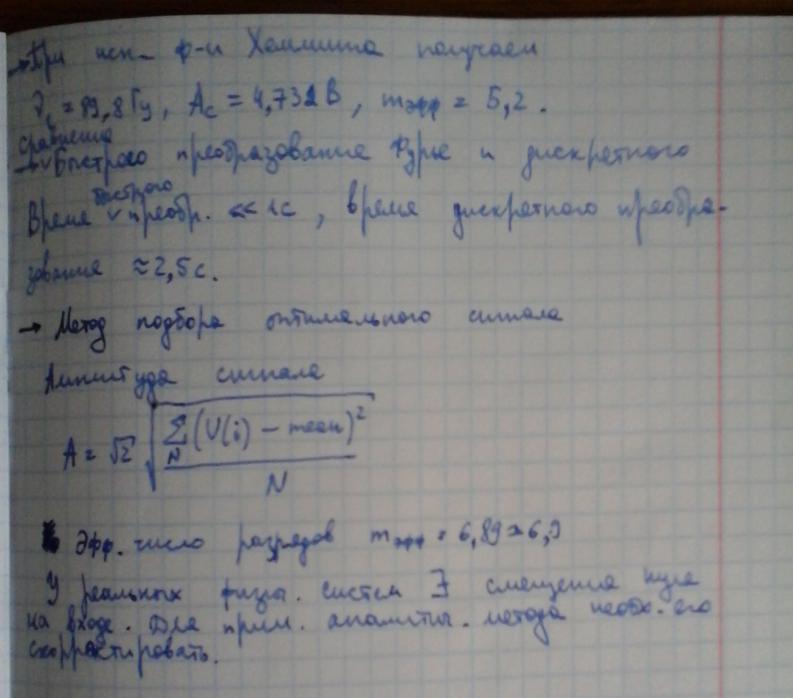 → При исп– ф-и Хемминга получаем
ν_c = 89,8 Гц, A_c = 4,731 В, m_эфф = 5,2.
сравнение
→ ∨ быстрого преобразование Фурье и дискретного
быстрого
Время ∨ преобр. << 1с, время дискретного преобра-
зования ≈ 2,5 с.
→ Метод подбора оптимального сигнала
Амплитуда сигнала
A = √2 √(Σ_N (U(i) – mean)² / N)
Эфф. число разрядов m_эфф = 6,89 ≈ 6,9
У реальных физич. систем ∃ смещение нуля
на входе. Для прим. аналитич. метода необх. его
скорректировать.